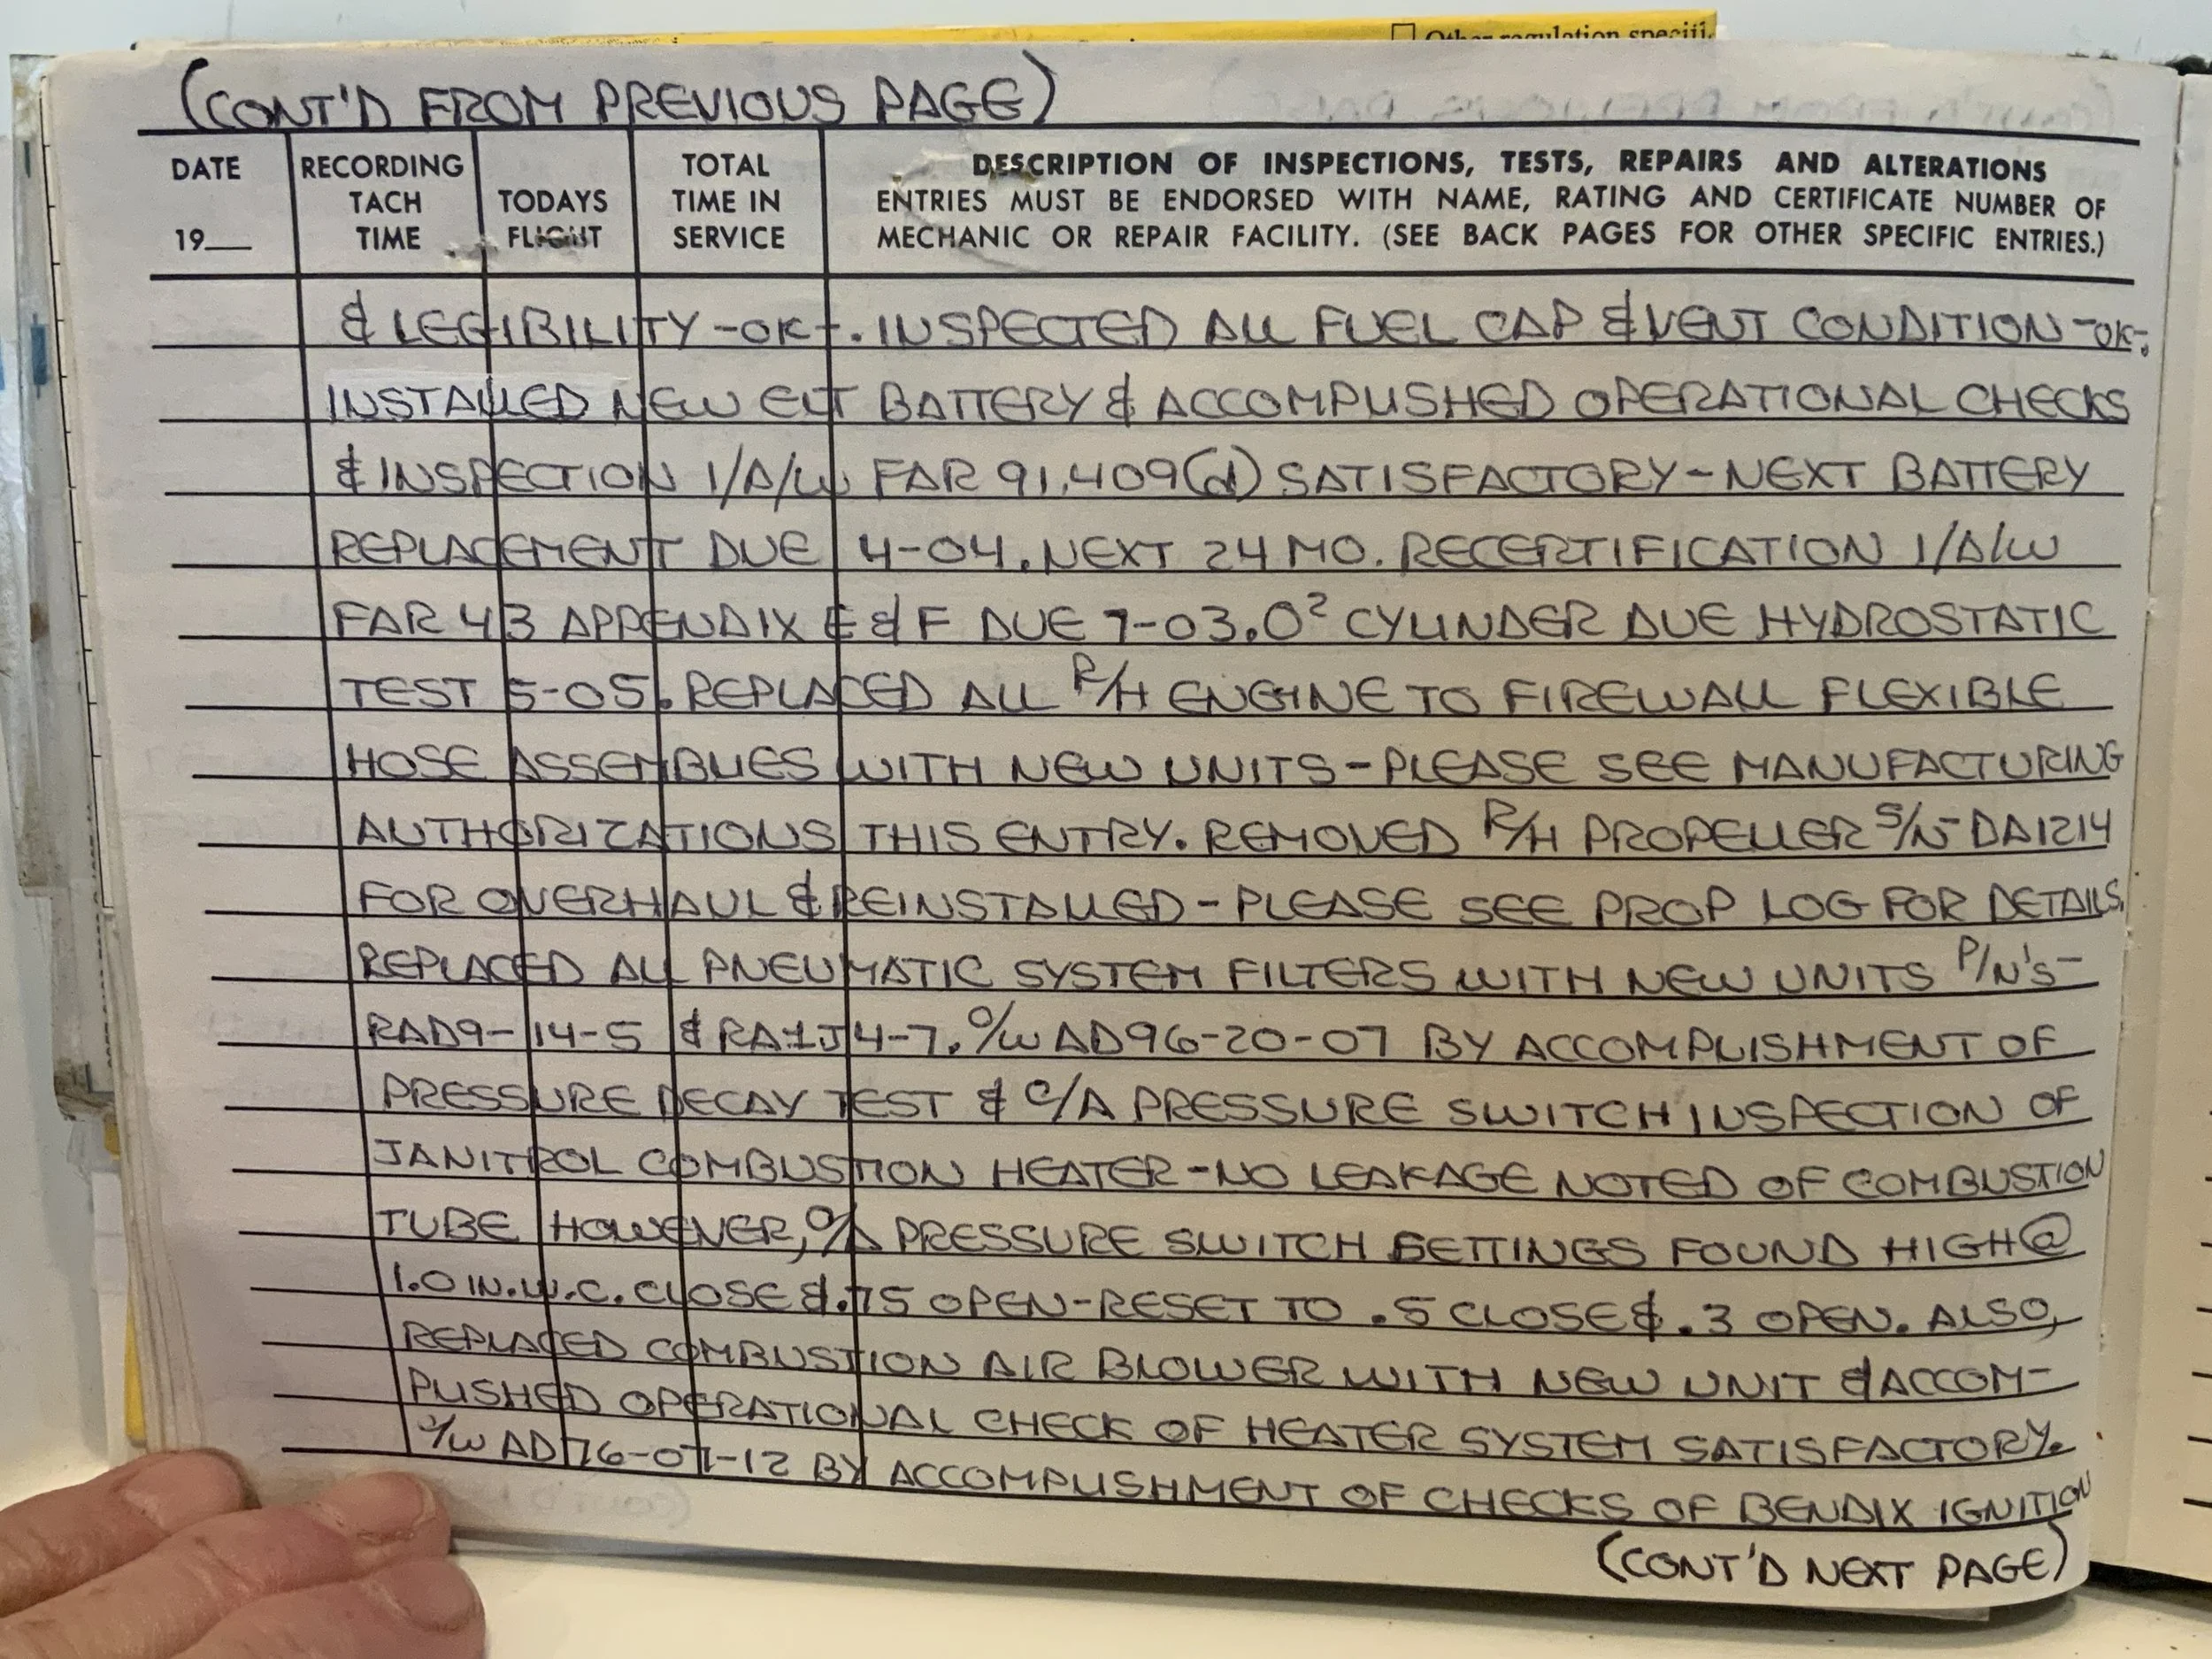 Other regulation specifi
(CONT'D FROM PREVIOUS PAGE)
DATE
19__
RECORDING
TACH
TIME
TODAYS
FLIGHT
TOTAL
TIME IN
SERVICE
DESCRIPTION OF INSPECTIONS, TESTS, REPAIRS AND ALTERATIONS
ENTRIES MUST BE ENDORSED WITH NAME, RATING AND CERTIFICATE NUMBER OF
MECHANIC OR REPAIR FACILITY. (SEE BACK PAGES FOR OTHER SPECIFIC ENTRIES.)
& LEGIBILITY -OK-. INSPECTED ALL FUEL CAP & VENT CONDITION -OK-.
INSTALLED NEW ELT BATTERY & ACCOMPLISHED OPERATIONAL CHECKS
& INSPECTION I/A/W FAR 91.409(d) SATISFACTORY - NEXT BATTERY
REPLACEMENT DUE 4-04. NEXT 24 MO. RECERTIFICATION I/A/W
FAR 43 APPENDIX E & F DUE 7-03. O² CYLINDER DUE HYDROSTATIC
TEST 5-05. REPLACED ALL R/H ENGINE TO FIREWALL FLEXIBLE
HOSE ASSEMBLIES WITH NEW UNITS - PLEASE SEE MANUFACTURING
AUTHORIZATIONS THIS ENTRY. REMOVED R/H PROPELLER S/N- DA1214
FOR OVERHAUL & REINSTALLED - PLEASE SEE PROP LOG FOR DETAILS.
REPLACED ALL PNEUMATIC SYSTEM FILTERS WITH NEW UNITS P/N'S-
RAD9-14-5 & RA1J4-7. C/W AD96-20-07 BY ACCOMPLISHMENT OF
PRESSURE DECAY TEST & C/A PRESSURE SWITCH INSPECTION OF
JANITROL COMBUSTION HEATER - NO LEAKAGE NOTED OF COMBUSTION
TUBE HOWEVER, C/A PRESSURE SWITCH SETTINGS FOUND HIGH @
1.0 IN. W.C. CLOSE & .75 OPEN - RESET TO .5 CLOSE & .3 OPEN. ALSO,
REPLACED COMBUSTION AIR BLOWER WITH NEW UNIT & ACCOM-
PLISHED OPERATIONAL CHECK OF HEATER SYSTEM SATISFACTORY.
C/W AD 76-07-12 BY ACCOMPLISHMENT OF CHECKS OF BENDIX IGNITION
(CONT'D NEXT PAGE)